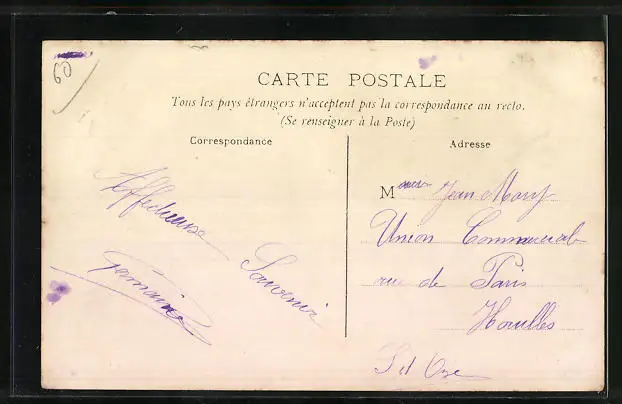 60
CARTE POSTALE
Tous les pays étrangers n'acceptent pas la correspondance au recto.
(Se renseigner à la Poste)
Correspondance
Affectueuse
Souvenir
Germaine
Adresse
M Jean Mary
Union Commerciale
rue de Paris
Houilles
S et Oise